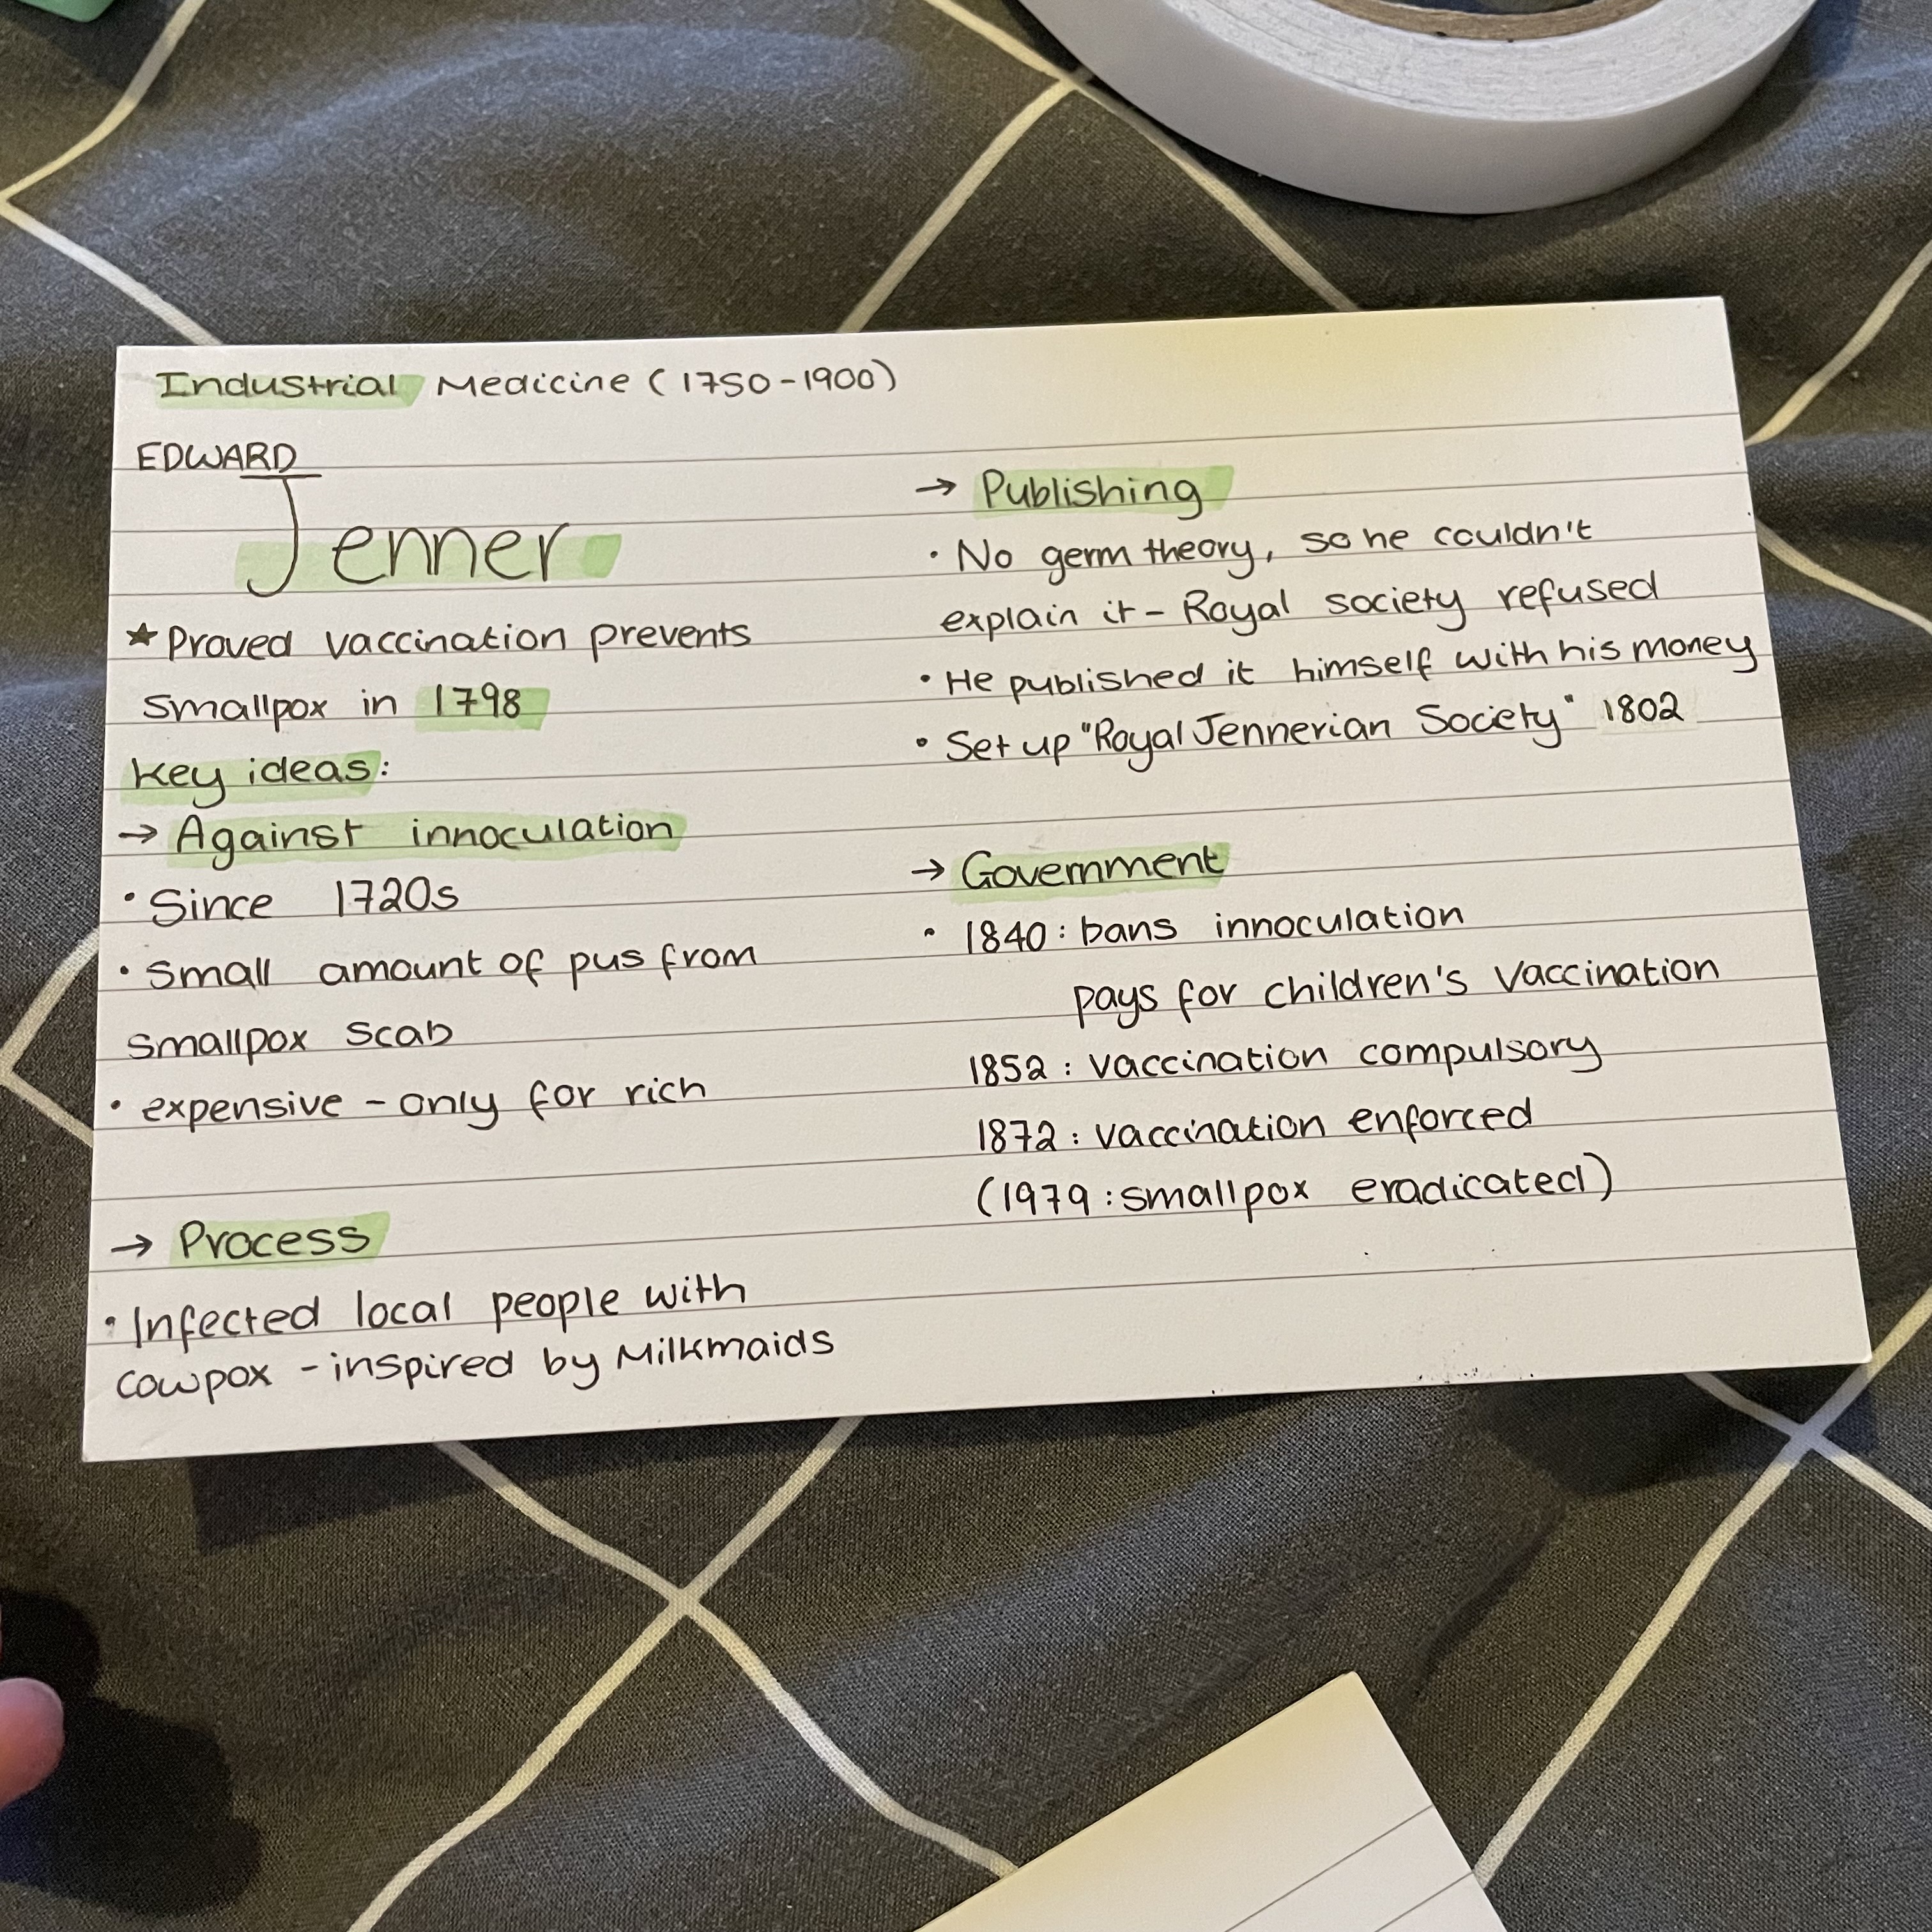 Industrial Medicine (1750-1900)
EDWARD
Jenner
★ Proved vaccination prevents
smallpox in 1798
Key ideas:
→ Against innoculation
• Since 1720s
• small amount of pus from
smallpox scab
• expensive - only for rich
→ Process
• Infected local people with
cowpox - inspired by Milkmaids
→ Publishing
• No germ theory, so he couldn't
explain it - Royal society refused
• He published it himself with his money
• Set up "Royal Jennerian Society" 1802
→ Government
• 1840: bans innoculation
pays for children's vaccination
1852: vaccination compulsory
1872: vaccination enforced
(1979: smallpox eradicated)